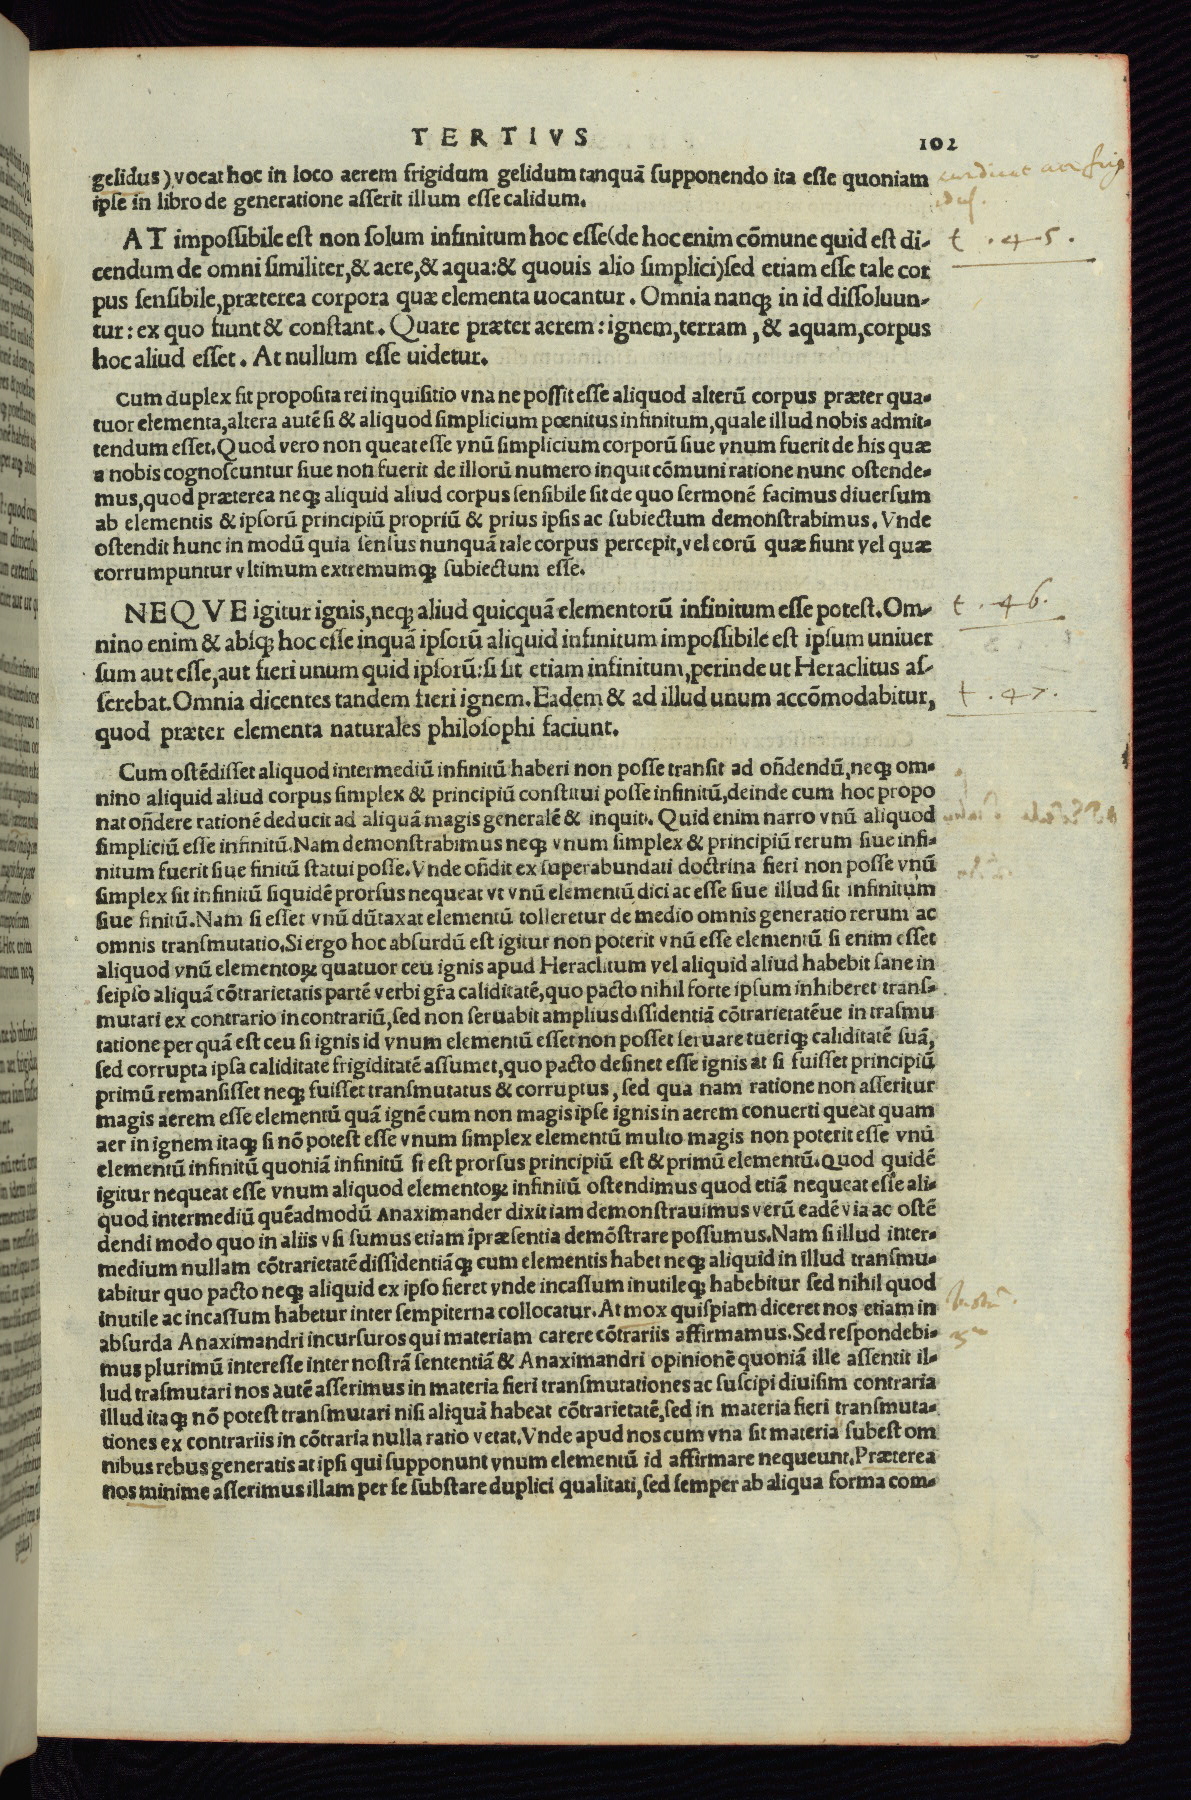 TERTIVS 102
gelidus) vocat hoc in loco aerem frigidum gelidum tanquã supponendo ita esse quoniam
ipse in libro de generatione asserit illum esse calidum.
AT impossibile est non solum infinitum hoc esse (de hoc enim cõmune quid est di-
t. 45.
cendum de omni similiter, & aere, & aqua: & quouis alio simplici) sed etiam esse tale cor
pus sensibile, præterea corpora quæ elementa uocantur. Omnia nanqꝫ in id dissoluun-
tur: ex quo fiunt & constant. Quare præter aerem: ignem, terram, & aquam, corpus
hoc aliud esset. At nullum esse uidetur.
Cum duplex sit proposita rei inquisitio vna ne possit esse aliquod alterũ corpus præter qua-
tuor elementa, altera autẽ si & aliquod simplicium pœnitus infinitum, quale illud nobis admit-
tendum esset. Quod vero non queat esse vnũ simplicium corporũ siue vnum fuerit de his quæ
a nobis cognoscuntur siue non fuerit de illorũ numero inquit cõmuni ratione nunc ostende-
mus, quod præterea neqꝫ aliquid aliud corpus sensibile sit de quo sermonẽ facimus diuersum
ab elementis & ipsorũ principiũ propriũ & prius ipsis ac subiectum demonstrabimus. Vnde
ostendit hunc in modũ quia sensus nunquã tale corpus percepit, vel eorũ quæ fiunt vel quæ
corrumpuntur vltimum extremumqꝫ subiectum esse.
NEQVE igitur ignis, neqꝫ aliud quicquã elementorũ infinitum esse potest. Om-
t. 46.
nino enim & absqꝫ hoc esse inquã ipsorũ aliquid infinitum impossibile est ipsum uniuer
sum aut esse, aut fieri unum quid ipsorũ: si sit etiam infinitum, perinde ut Heraclitus as-
serebat. Omnia dicentes tandem fieri ignem. Eadem & ad illud unum accõmodabitur,
t. 47.
quod præter elementa naturales philosophi faciunt.
Cum ostẽdisset aliquod intermediũ infinitũ haberi non posse transit ad oñdendũ, neqꝫ om-
nino aliquid aliud corpus simplex & principiũ constitui posse infinitũ, deinde cum hoc propo
nat oñdere rationẽ deducit ad aliquã magis generalẽ & inquit. Quid enim narro vnũ aliquod
simpliciũ esse infinitũ. Nam demonstrabimus neqꝫ vnum simplex & principiũ rerum siue infi-
nitum fuerit siue finitũ statui posse. Vnde oñdit ex superabundati doctrina fieri non posse vnũ
simplex sit infinitũ siquidẽ prorsus nequeat vt vnũ elementũ dici ac esse siue illud sit infinitum
siue finitũ. Nam si esset vnũ dũtaxat elementũ tolleretur de medio omnis generatio rerum ac
omnis transmutatio. Si ergo hoc absurdũ est igitur non poterit vnũ esse elementũ si enim esset
aliquod vnũ elementoꝝ quatuor ceu ignis apud Heraclitum vel aliquid aliud habebit sane in
seipso aliquã cõtrarietatis partẽ verbi gr̃a caliditatẽ, quo pacto nihil forte ipsum inhiberet trans-
mutari ex contrario in contrariũ, sed non seruabit amplius dissidentiã cõtrarietatẽue in trasmu
tatione per quã est ceu si ignis id vnum elementũ esset non posset seruare tueriqꝫ caliditatẽ suã,
sed corrupta ipsa caliditate frigiditatẽ assumet, quo pacto desinet esse ignis at si fuisset principiũ
primũ remansisset neqꝫ fuisset transmutatus & corruptus, sed qua nam ratione non asseritur
magis aerem esse elementũ quã ignẽ cum non magis ipse ignis in aerem conuerti queat quam
aer in ignem itaqꝫ si nõ potest esse vnum simplex elementũ multo magis non poterit esse vnũ
elementũ infinitũ quoniã infinitũ si est prorsus principiũ est & primũ elementũ. Quod quidẽ
igitur nequeat esse vnum aliquod elementoꝝ infinitũ ostendimus quod etiã nequeat esse ali-
quod intermediũ quẽadmodũ Anaximander dixit iam demonstrauimus verũ eadẽ via ac ostẽ
dendi modo quo in aliis vsi sumus etiam ĩpræsentia demõstrare possumus. Nam si illud inter-
medium nullam cõtrarietatẽ dissidentiãqꝫ cum elementis habet neqꝫ aliquid in illud transmu-
tabitur quo pacto neqꝫ aliquid ex ipso fieret vnde incassum inutileqꝫ habebitur sed nihil quod
inutile ac incassum habetur inter sempiterna collocatur. At mox quispiam diceret nos etiam in
absurda Anaximandri incursuros qui materiam carere cõtrariis affirmamus. Sed respondebi-
mus plurimũ interesse inter nostrã sententiã & Anaximandri opinionẽ quoniã ille assentit il-
lud trasmutari nos autẽ asserimus in materia fieri transmutationes ac suscipi diuisim contraria
illud itaqꝫ nõ potest transmutari nisi aliquã habeat cõtrarietatẽ, sed in materia fieri transmuta-
tiones ex contrariis in cõtraria nulla ratio vetat. Vnde apud nos cum vna sit materia subest om
nibus rebus generatis at ipsi qui supponunt vnum elementũ id affirmare nequeunt. Præterea
nos minime asserimus illam per se substare duplici qualitati, sed semper ab aliqua forma com-